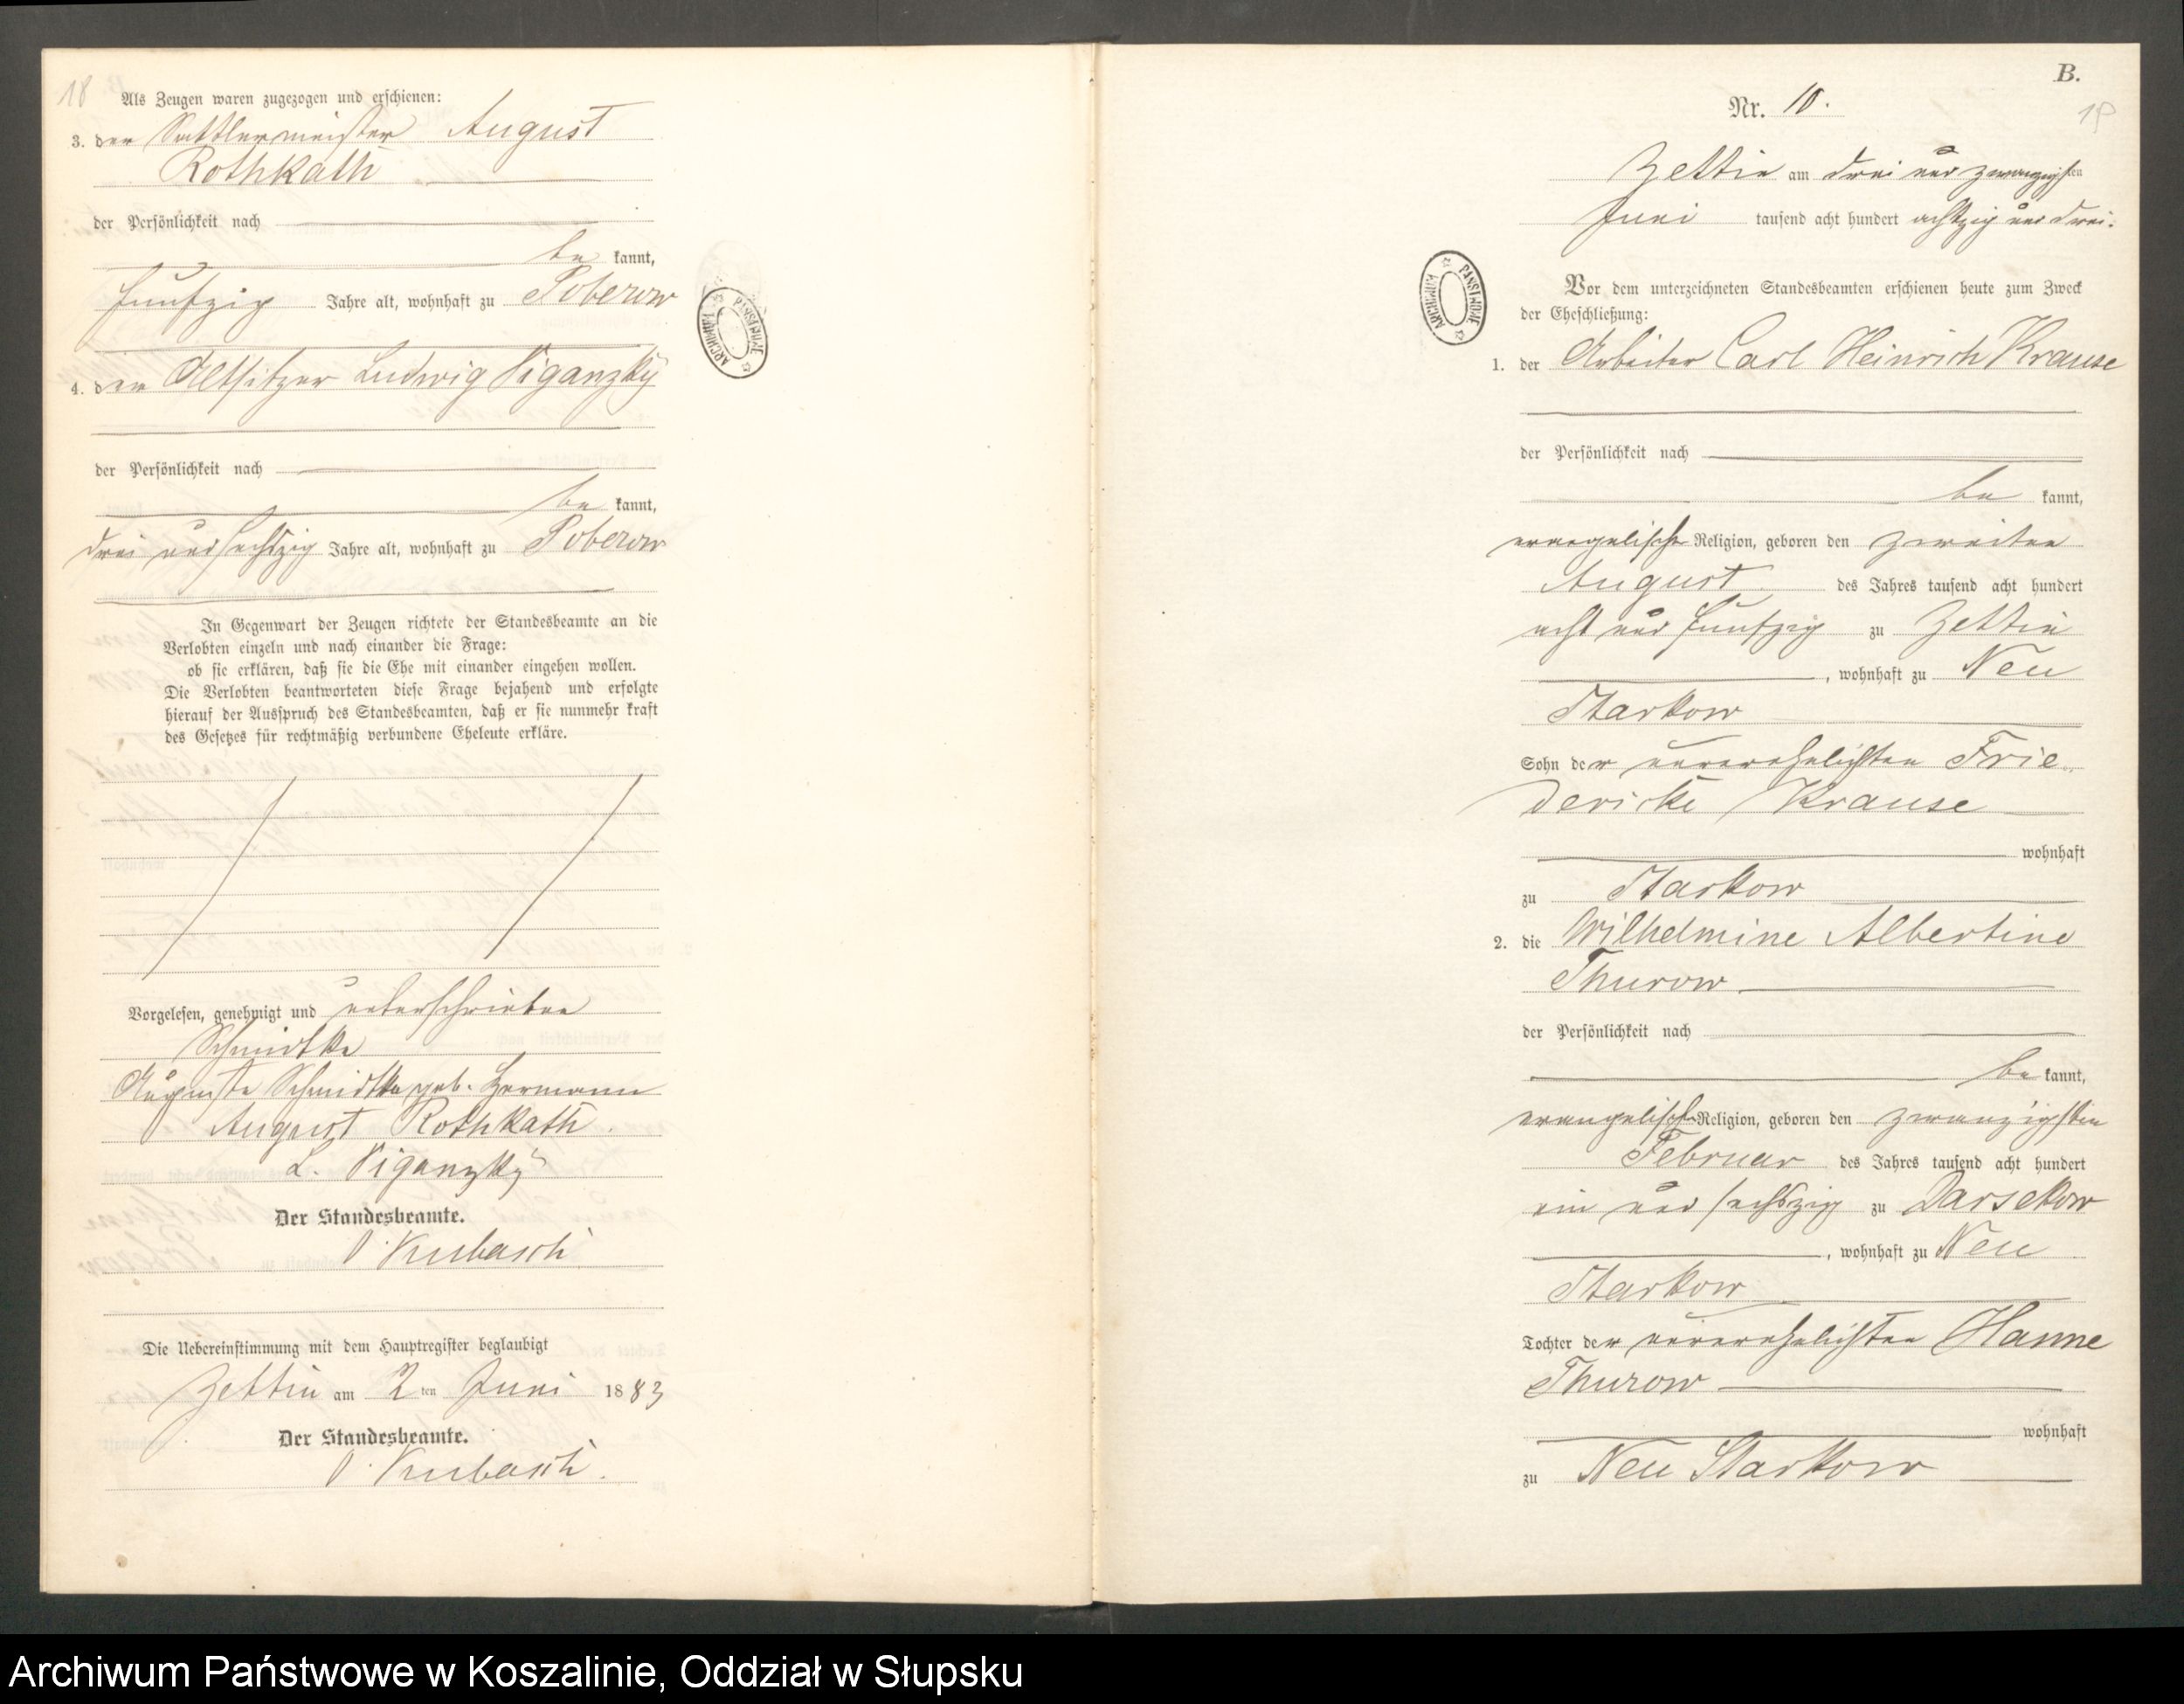 18
Als Zeugen waren zugezogen und erschienen:
3. der Sattlermeister August
Rothkath
der Persönlichkeit nach
be kannt,
funfzig Jahre alt, wohnhaft zu Poberow
4. der Altsitzer Ludwig Piganzky
der Persönlichkeit nach
be kannt,
drei und sechszig Jahre alt, wohnhaft zu Poberow
In Gegenwart der Zeugen richtete der Standesbeamte an die
Verlobten einzeln und nach einander die Frage:
ob sie erklären, daß sie die Ehe mit einander eingehen wollen.
Die Verlobten beantworteten diese Frage bejahend und erfolgte
hierauf der Ausspruch des Standesbeamten, daß er sie nunmehr kraft
des Gesetzes für rechtmäßig verbundene Eheleute erkläre.
Vorgelesen, genehmigt und unterschrieben
Schmidtke
Auguste Schmidtke geb. Hermann
August Rothkath.
L. Piganzky
Der Standesbeamte.
Kubasch
Die Uebereinstimmung mit dem Hauptregister beglaubigt
Zettin am 2 ten Juni 1883
Der Standesbeamte.
Kubasch.
ARCHIWUM PAŃSTWOWE
B.
Nr. 10.
19
Zettin am drei und zwanzigsten
Juni tausend acht hundert achtzig und drei.
ARCHIWUM PAŃSTWOWE
Vor dem unterzeichneten Standesbeamten erschienen heute zum Zweck
der Eheschließung:
1. der Arbeiter Carl Heinrich Krause
der Persönlichkeit nach
be kannt,
evangelischer Religion, geboren den zweiten
August des Jahres tausend acht hundert
acht und funfzig zu Zettin
, wohnhaft zu Neu
Starkow
Sohn der unverehelichten Frie
dericke Krause
wohnhaft
zu Starkow
2. die Wilhelmine Albertine
Thurow
der Persönlichkeit nach
be kannt,
evangelischer Religion, geboren den zwanzigsten
Februar des Jahres tausend acht hundert
ein und sechszig zu Darsekow
, wohnhaft zu Neu
Starkow
Tochter der unverehelichten Hanne
Thurow
wohnhaft
zu Neu Starkow
Archiwum Państwowe w Koszalinie, Oddział w Słupsku